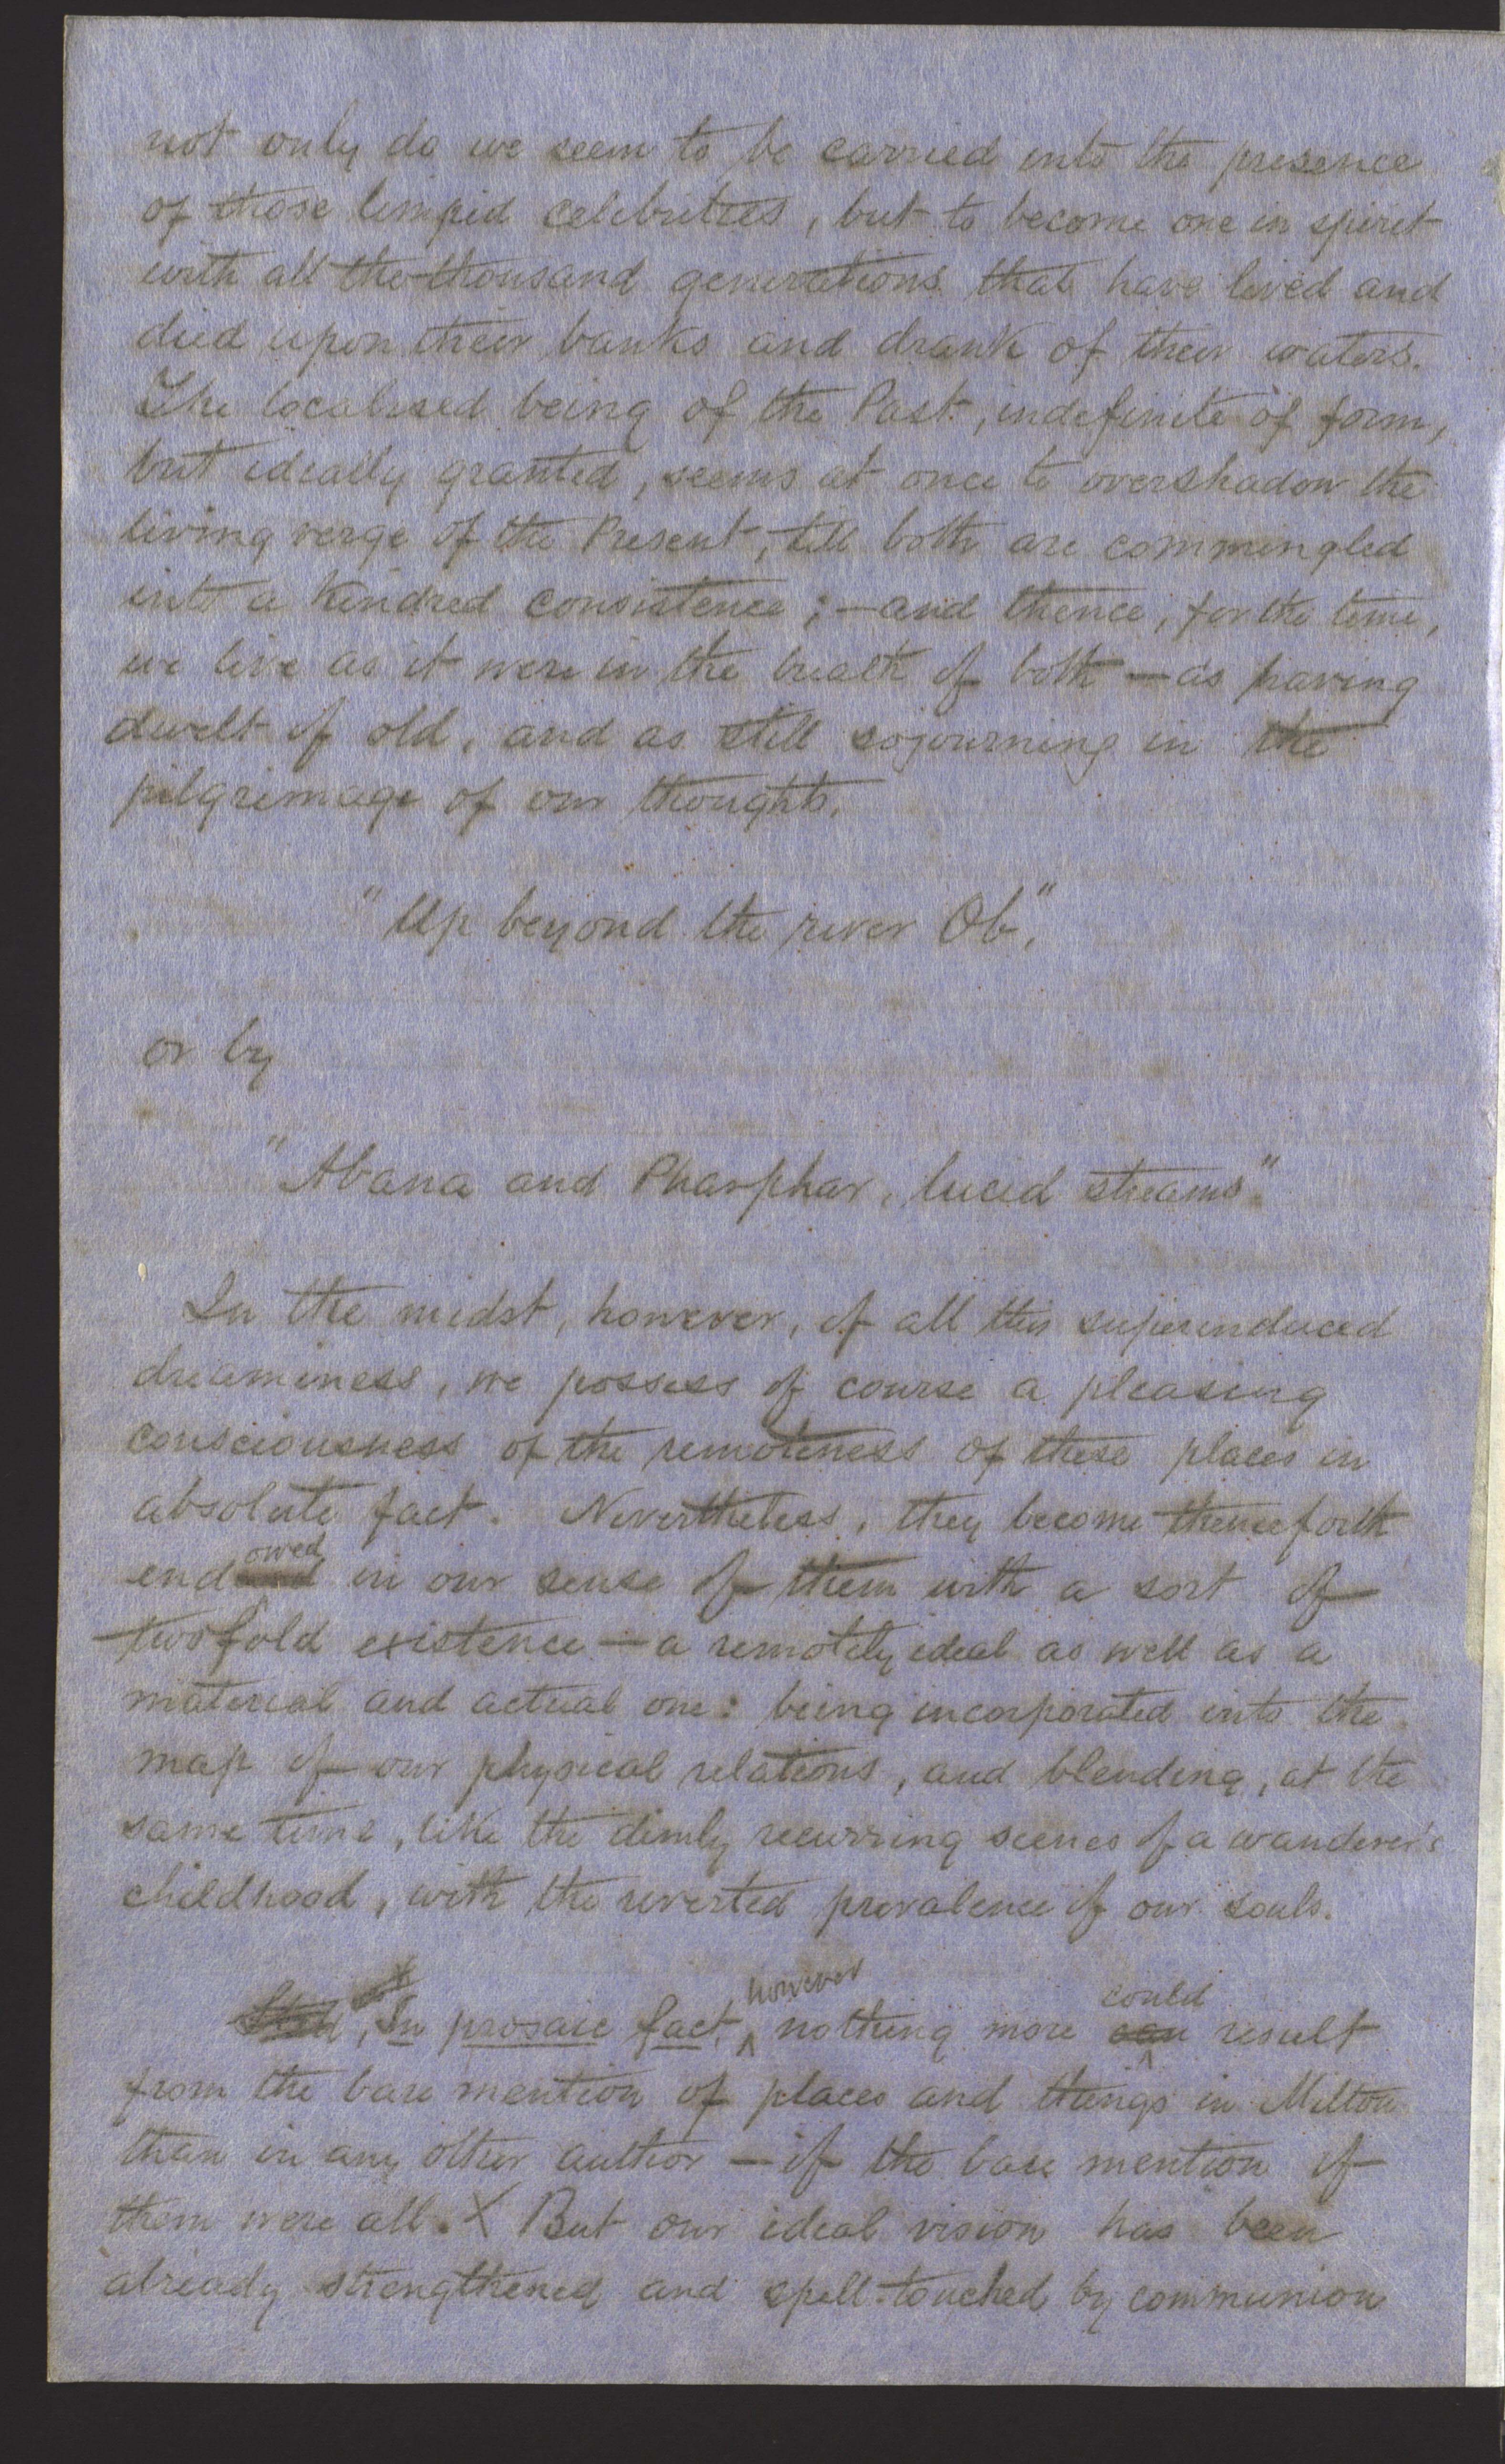 not only do we seem to be carried into the presence
of those limpid celebrities, but to become one in spirit
with all the thousand generations that have lived and
died upon their banks and drank of their waters.
The localised being of the Past, indefinite of form,
but ideally granted, seems at once to overshadow the
living verge of the Present, till both are commingled
into a kindred consistence; — and thence, for the time,
we live as it were in the breath of both — as having
dwelt of old, and as still sojourning in the
pilgrimage of our thoughts,
"Up beyond the river Ob,"
or by
"Abana and Pharphar, lucid streams".
In the midst, however, of all this superinduced
dreaminess, we possess of course a pleasing
consciousness of the remoteness of these places in
absolute fact. Nevertheless, they become thenceforth
endowed in our sense of them with a sort of
twofold existence — a remotely ideal as well as a
material and actual one: being incorporated into the
map of our physical relations, and blending, at the
same time, like the dimly recurring scenes of a wanderer's
childhood, with the reverted prevalence of our souls.
In prosaic fact, however nothing more can could result
from the bare mention of places and things in Milton
than in any other author — if the bare mention of
them were all. X But our ideal vision has been
already strengthened and spell-touched by communion